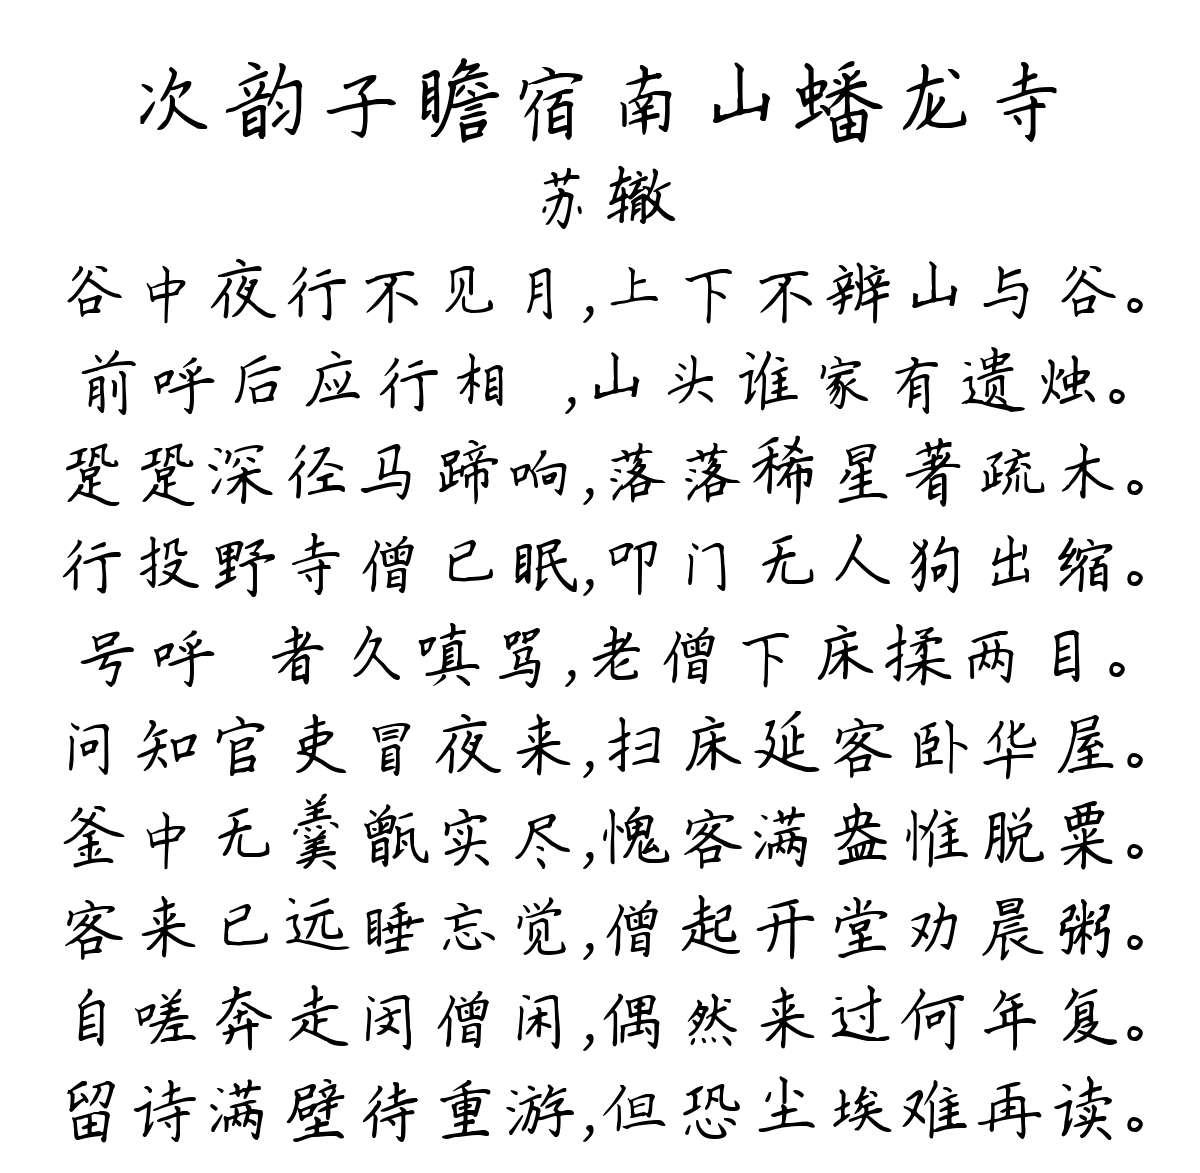 次韵子瞻宿南山蟠龙寺
苏辙
谷中夜行不见月,上下不辨山与谷。
前呼后应行相 ,山头谁家有遗烛。
跫跫深径马蹄响,落落稀星著疏木。
行投野寺僧已眠,叩门无人狗出缩。
号呼 者久嗔骂,老僧下床揉两目。
问知官吏冒夜来,扫床延客卧华屋。
釜中无羹甑实尽,愧客满盎惟脱粟。
客来已远睡忘觉,僧起开堂劝晨粥。
自嗟奔走闵僧闲,偶然来过何年复。
留诗满壁待重游,但恐尘埃难再读。